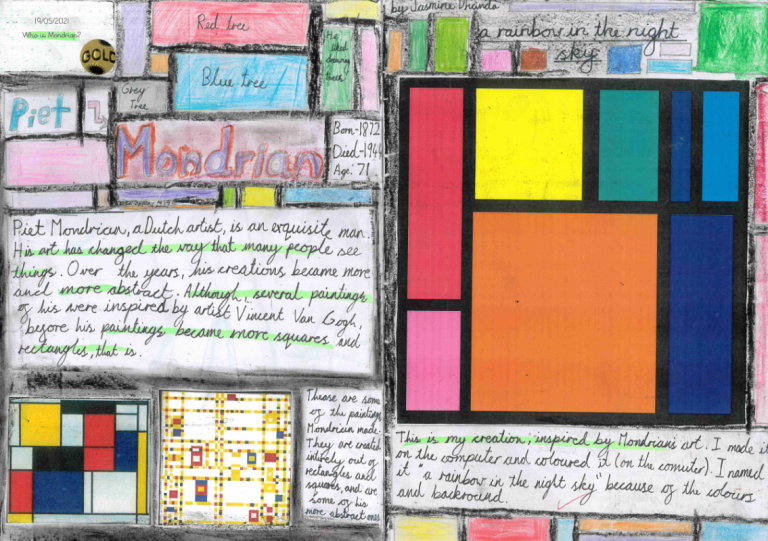 19/05/2021
Who is Mondrian?
GOLD
Red tree
Blue tree
Grey
Tree
He
liked
drawing
trees
Piet
Mondrian
Born-1872
Died-1944
Age: 71
Piet Mondrian, a Dutch artist, is an exquisite man.
His art has changed the way that many people see
things. Over the years, his creations became more
and more abstract. Although, several paintings
of his were inspired by artist Vincent Van Gogh,
before his paintings became more squares and
rectangles, that is.
These are some
of the paintings
Mondrian made.
They are created
intirely out of
rectangles and
squares, and are
some of his
more abstract ones.
by Jasmine
a rainbow in the night
sky
This is my creation, inspired by Mondrians art. I made it
on the computer and coloured it (on the comuter). I named
it "a rainbow in the night sky" because of the colours
and backround.